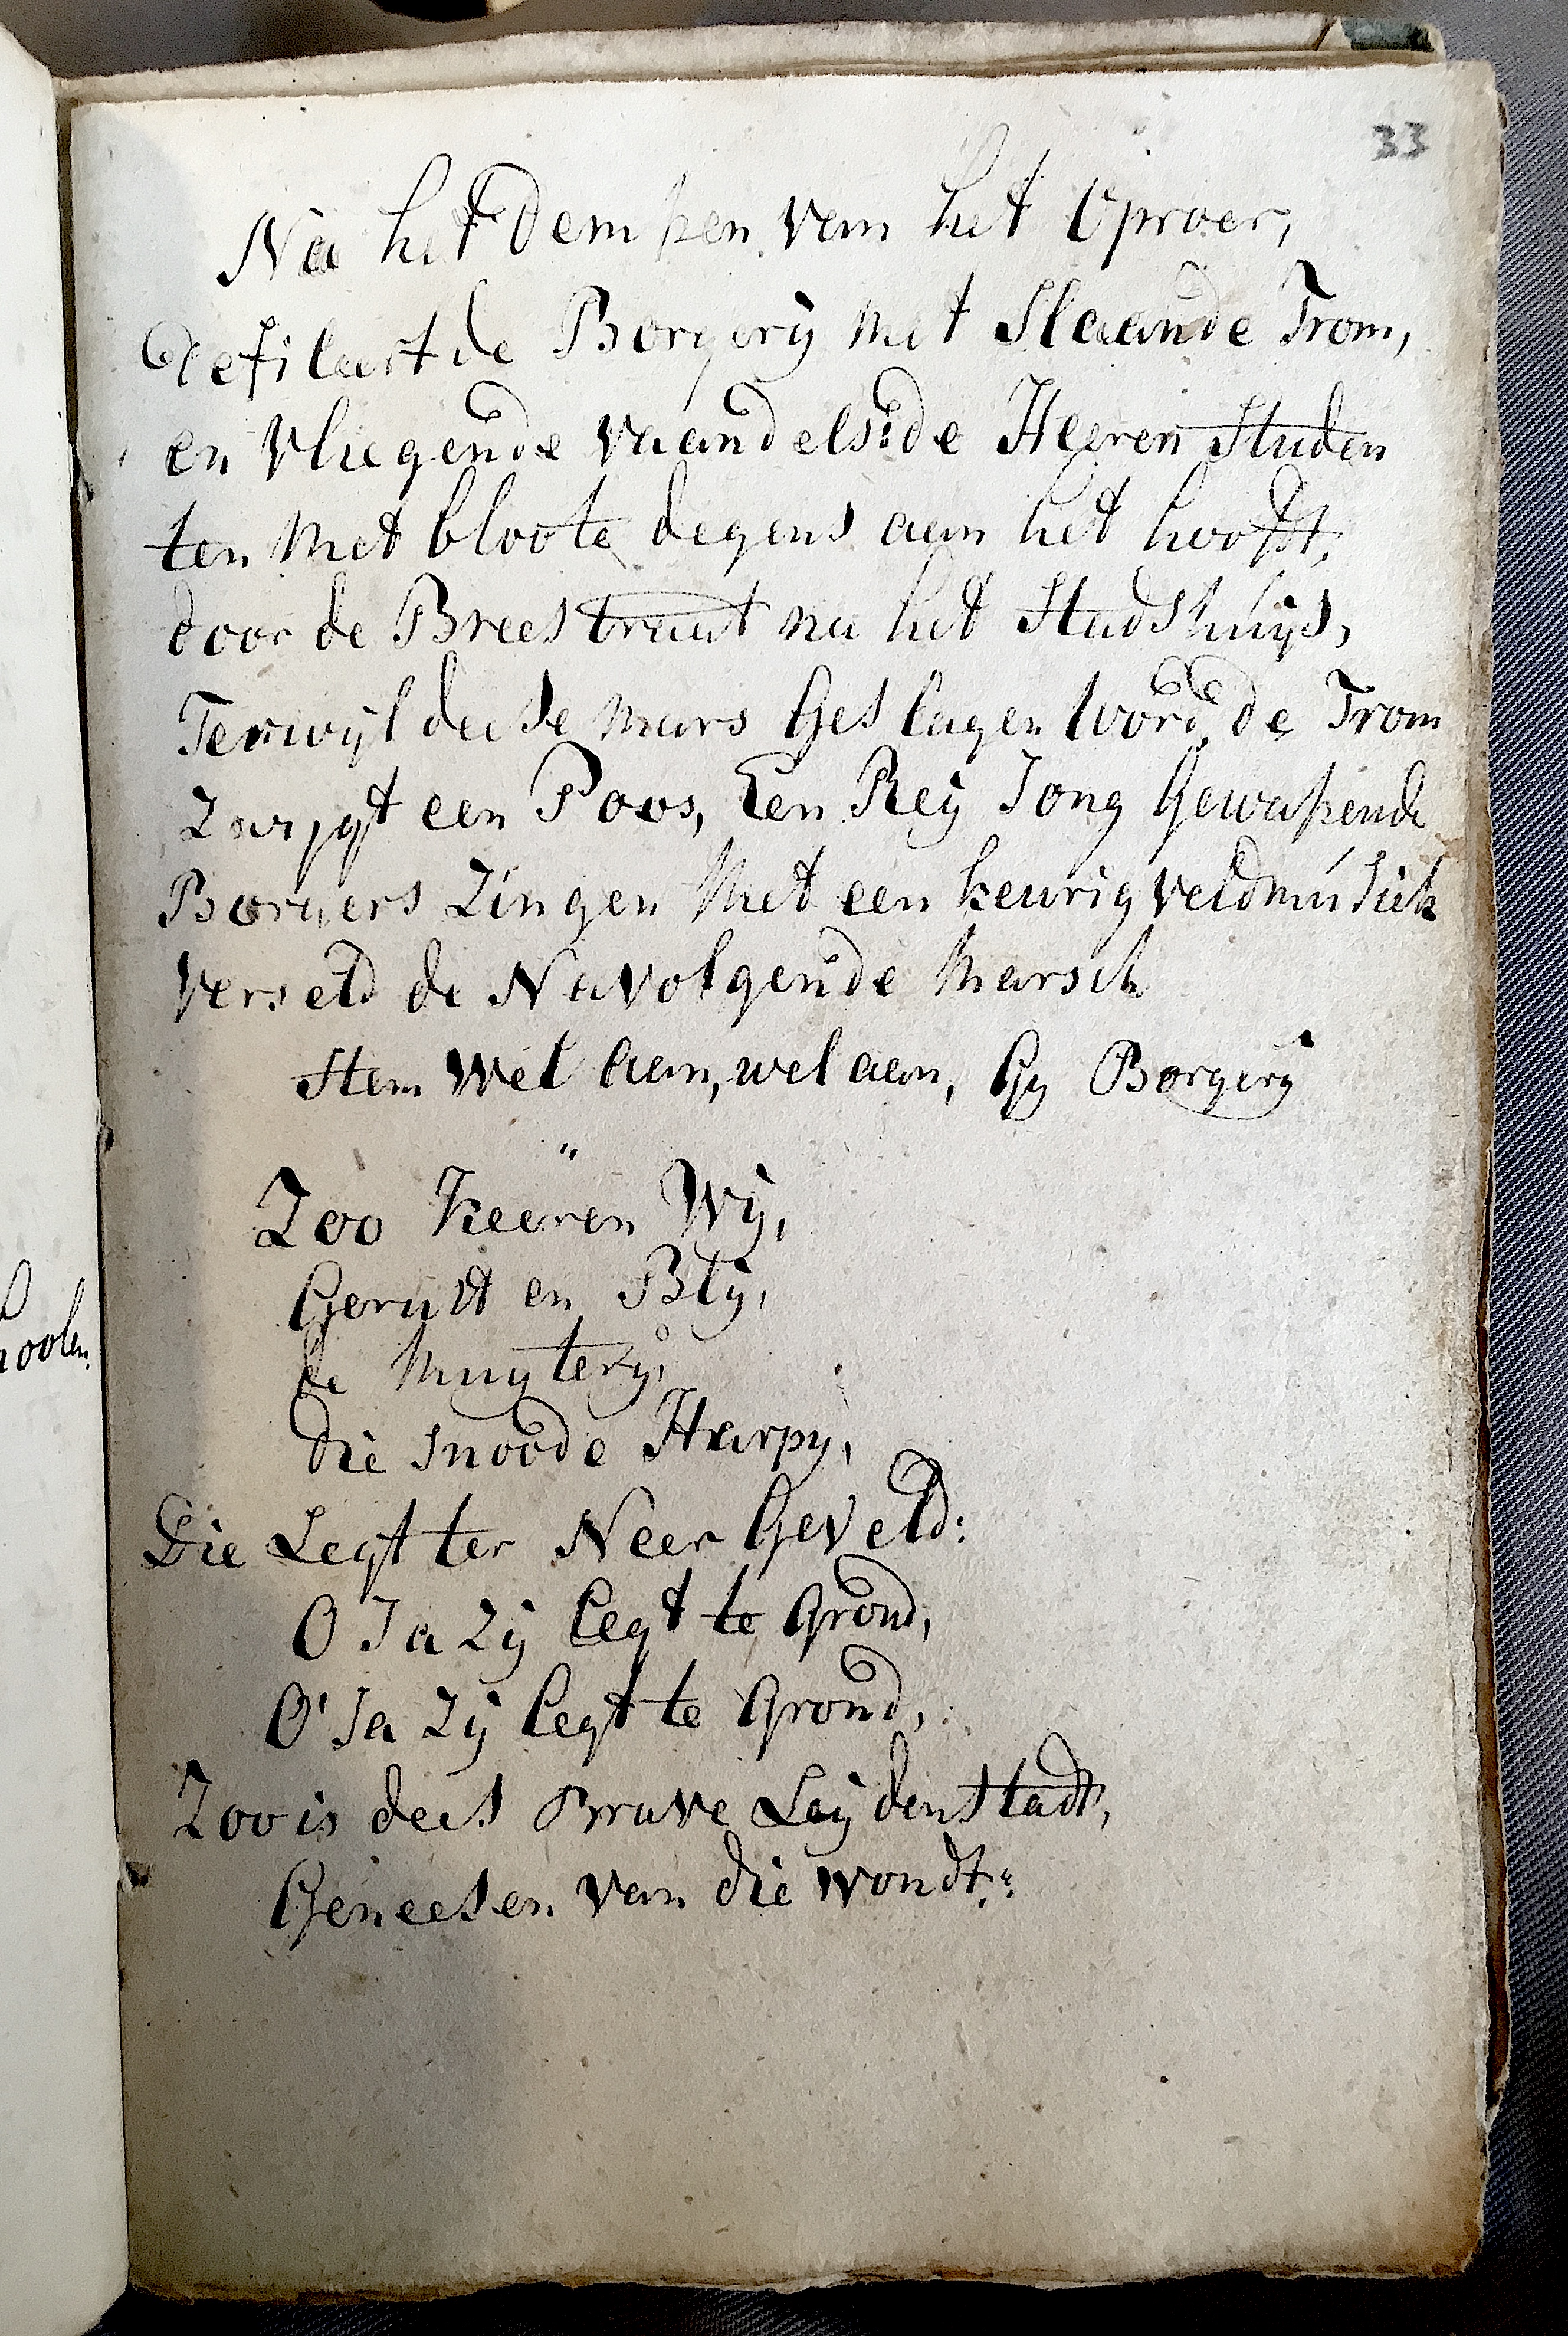 33
Na het dempen van het Oproer,
defileert de Borgerij met Slaande Trom,
en Vliegende Vaandels: de Heeren Studen
ten Met bloote degens aan het hooft,
door de Breestraat na het Stadshuijs,
Terwijl deese Mars Geslagen word de Trom
Zwijgt een Poos, Een Reij Jong Gewapende
Borgers Zingen Met een keurig veldmusiek
Verseld de Navolgende Marsch
Stem Wel aan, wel aan, Gy Borgerij
Zoo Keeren Wij,
Gerust en Blij,
de Muyterij,
die snoode Harpy,
Die Legt ter Neer Geveld:
O Ja Zij legt te Grond,
O' Ja Zij legt te Grond,
Zoo is dees Brave Leijdenstadt,
Geneesen van die wondt:
hoolen.